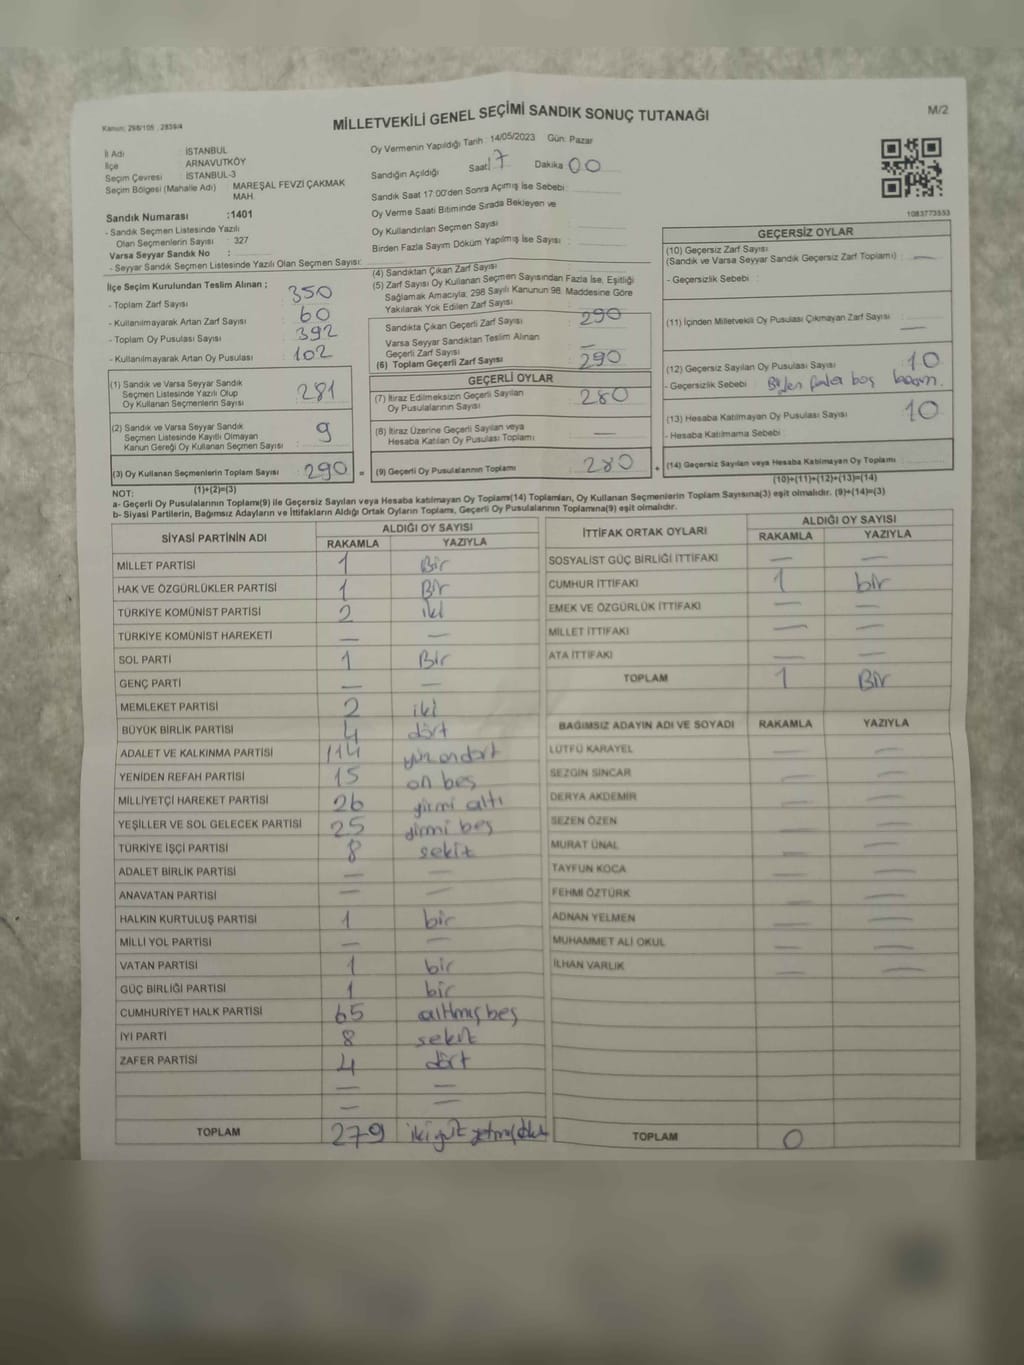 Kanun: 298/105 , 2839/4
MİLLETVEKİLİ GENEL SEÇİMİ SANDIK SONUÇ TUTANAĞI
M/2
İl Adı : İSTANBUL
İlçe : ARNAVUTKÖY
Seçim Çevresi : İSTANBUL-3
Seçim Bölgesi (Mahalle Adı) : MAREŞAL FEVZİ ÇAKMAK MAH.
Sandık Numarası :1401
- Sandık Seçmen Listesinde Yazılı
Olan Seçmenlerin Sayısı : 327
Varsa Seyyar Sandık No :
- Seyyar Sandık Seçmen Listesinde Yazılı Olan Seçmen Sayısı:
Oy Vermenin Yapıldığı Tarih : 14/05/2023 Gün: Pazar
Sandığın Açıldığı Saat 17 Dakika 00
Sandık Saat 17:00'den Sonra Açımış İse Sebebi :
Oy Verme Saati Bitiminde Sırada Bekleyen ve
Oy Kullandırılan Seçmen Sayısı :
Birden Fazla Sayım Döküm Yapılmış İse Sayısı :
1083773553
İlçe Seçim Kurulundan Teslim Alınan ;
- Toplam Zarf Sayısı : 350
- Kullanılmayarak Artan Zarf Sayısı : 60
- Toplam Oy Pusulası Sayısı : 392
- Kullanılmayarak Artan Oy Pusulası : 102
(1) Sandık ve Varsa Seyyar Sandık
Seçmen Listesinde Yazılı Olup
Oy Kullanan Seçmenlerin Sayısı : 281
(2) Sandık ve Varsa Seyyar Sandık
Seçmen Listesinde Kayıtlı Olmayan
Kanun Gereği Oy Kullanan Seçmen Sayısı : 9
(3) Oy Kullanan Seçmenlerin Toplam Sayısı : 290
(1)+(2)=(3)
(4) Sandıktan Çıkan Zarf Sayısı
(5) Zarf Sayısı Oy Kullanan Seçmen Sayısından Fazla İse, Eşitliği
Sağlamak Amacıyla; 298 Sayılı Kanunun 98. Maddesine Göre
Yakılarak Yok Edilen Zarf Sayısı :
Sandıkta Çıkan Geçerli Zarf Sayısı : 290
Varsa Seyyar Sandıktan Teslim Alınan
Geçerli Zarf Sayısı : —
(6) Toplam Geçerli Zarf Sayısı : 290
GEÇERLİ OYLAR
(7) İtiraz Edilmeksizin Geçerli Sayılan
Oy Pusulalarının Sayısı : 280
(8) İtiraz Üzerine Geçerli Sayılan veya
Hesaba Katılan Oy Pusulası Toplamı : —
= (9) Geçerli Oy Pusulalarının Toplamı : 280
GEÇERSİZ OYLAR
(10) Geçersiz Zarf Sayısı
(Sandık ve Varsa Seyyar Sandık Geçersiz Zarf Toplamı) : —
- Geçersizlik Sebebi :
(11) İçinden Milletvekili Oy Pusulası Çıkmayan Zarf Sayısı : —
(12) Geçersiz Sayılan Oy Pusulası Sayısı : 10
- Geçersizlik Sebebi :
(13) Hesaba Katılmayan Oy Pusulası Sayısı : 10
- Hesaba Katılmama Sebebi :
+ (14) Geçersiz Sayılan veya Hesaba Katılmayan Oy Toplamı :
(10)+(11)+(12)+(13)=(14)
NOT:
a- Geçerli Oy Pusulalarının Toplamı(9) ile Geçersiz Sayılan veya Hesaba katılmayan Oy Toplam(14) Toplamları, Oy Kullanan Seçmenlerin Toplam Sayısına(3) eşit olmalıdır. (9)+(14)=(3)
b- Siyasi Partilerin, Bağımsız Adayların ve İttifakların Aldığı Ortak Oyların Toplamı, Geçerli Oy Pusulalarının Toplamına(9) eşit olmalıdır.
SİYASİ PARTİNİN ADI ALDIĞI OY SAYISI
RAKAMLA YAZIYLA
MİLLET PARTİSİ 1 Bir
HAK VE ÖZGÜRLÜKLER PARTİSİ 1 Bir
TÜRKİYE KOMÜNİST PARTİSİ 2 iki
TÜRKİYE KOMÜNİST HAREKETİ — —
SOL PARTİ 1 Bir
GENÇ PARTİ — —
MEMLEKET PARTİSİ 2 iki
BÜYÜK BİRLİK PARTİSİ 4 dört
ADALET VE KALKINMA PARTİSİ 114 yüz ondört
YENİDEN REFAH PARTİSİ 15 on beş
MİLLİYETÇİ HAREKET PARTİSİ 26 yirmi altı
YEŞİLLER VE SOL GELECEK PARTİSİ 25 yirmi beş
TÜRKİYE İŞÇİ PARTİSİ 8 sekiz
ADALET BİRLİK PARTİSİ — —
ANAVATAN PARTİSİ — —
HALKIN KURTULUŞ PARTİSİ 1 bir
MİLLİ YOL PARTİSİ — —
VATAN PARTİSİ 1 bir
GÜÇ BİRLİĞİ PARTİSİ 1 bir
CUMHURİYET HALK PARTİSİ 65 altmış beş
İYİ PARTİ 8 sekiz
ZAFER PARTİSİ 4 dört
— —
— —
TOPLAM 279
İTTİFAK ORTAK OYLARI ALDIĞI OY SAYISI
RAKAMLA YAZIYLA
SOSYALİST GÜÇ BİRLİĞİ İTTİFAKI — —
CUMHUR İTTİFAKI 1 bir
EMEK VE ÖZGÜRLÜK İTTİFAKI — —
MİLLET İTTİFAKI — —
ATA İTTİFAKI — —
TOPLAM 1 Bir
BAĞIMSIZ ADAYIN ADI VE SOYADI RAKAMLA YAZIYLA
LÜTFÜ KARAYEL — —
SEZGİN SİNCAR — —
DERYA AKDEMİR — —
SEZEN ÖZEN — —
MURAT ÜNAL — —
TAYFUN KOCA — —
FEHMİ ÖZTÜRK — —
ADNAN YELMEN — —
MUHAMMET ALİ OKUL — —
İLHAN VARLIK — —
TOPLAM 0